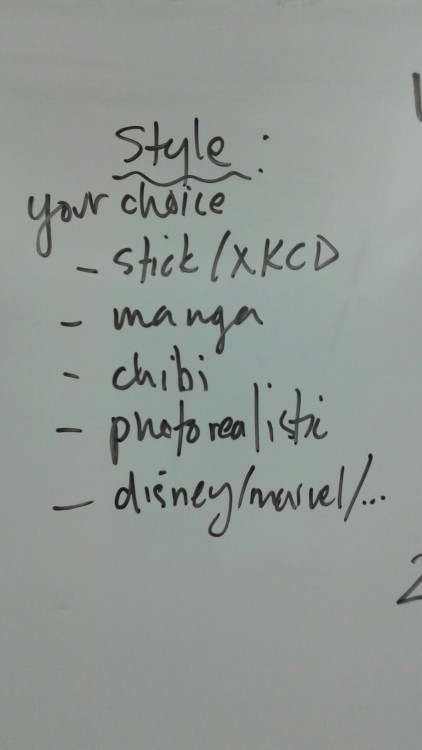 Style:
your choice
- stick/XKCD
- manga
- chibi
- photorealistic
- disney/marvel/...
2